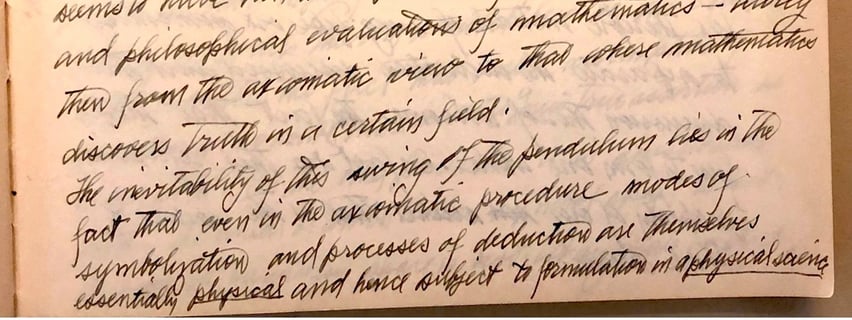 seems to have
and philosophical evaluations of mathematics –
then from the axiomatic view to that where mathematics
discovers truth in a certain field.
The inevitability of this swing of the pendulum lies in the
fact that even in the axiomatic procedure modes of
symbolization and processes of deduction are themselves
essentially physical and hence subject to formulation in a physical science